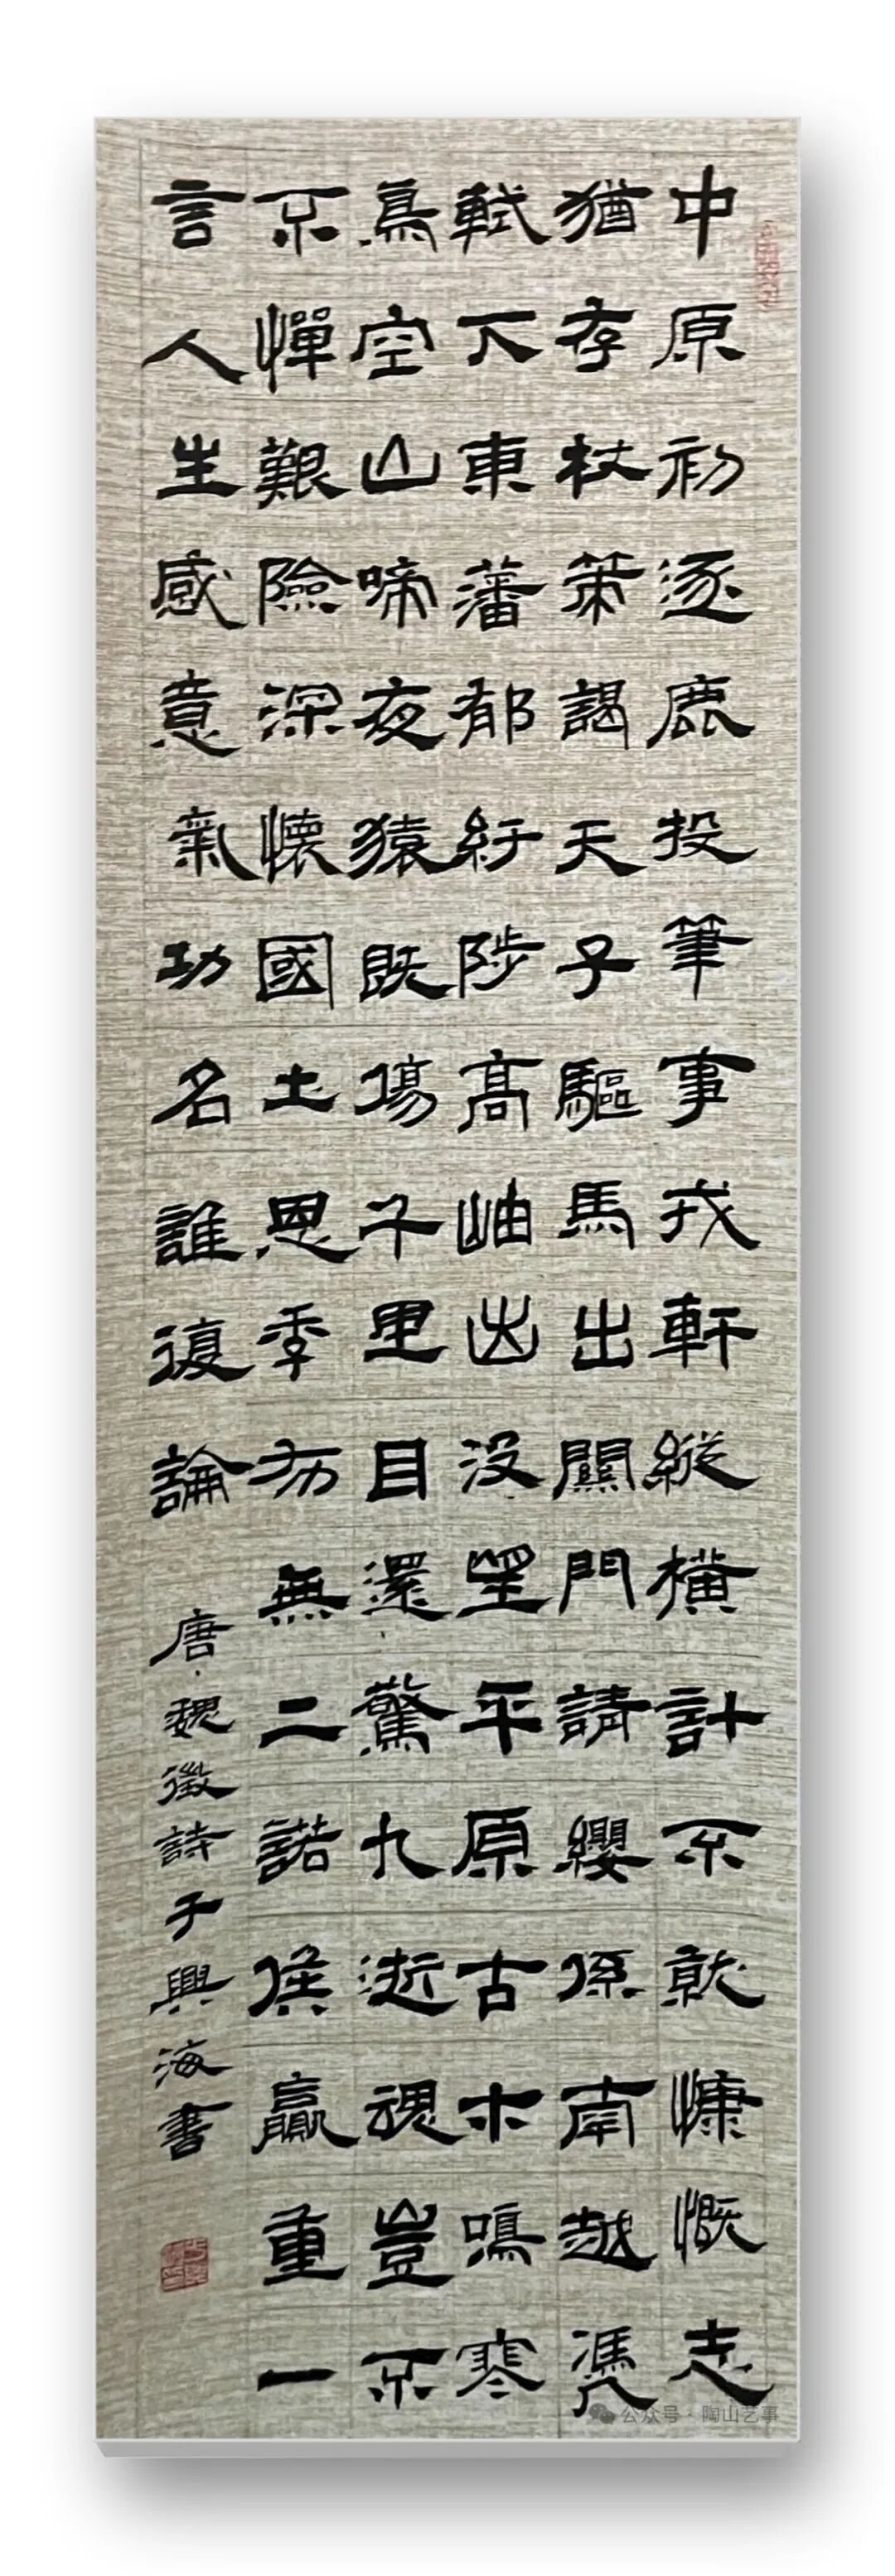 中原初逐鹿投筆事戎軒縱橫計不就慷慨志
猶存杖策謁天子驅馬出關門請纓係南越凴
軾下東藩郁紆陟高岫出没望平原古木鳴寒
鳥空山啼夜猿既傷千里目還驚九逝魂豈不
不憚艱險深懷國土恩季布無二諾侯嬴重一
言人生感意氣功名誰復論
唐魏徵詩于興海書
公众号·陶山艺事